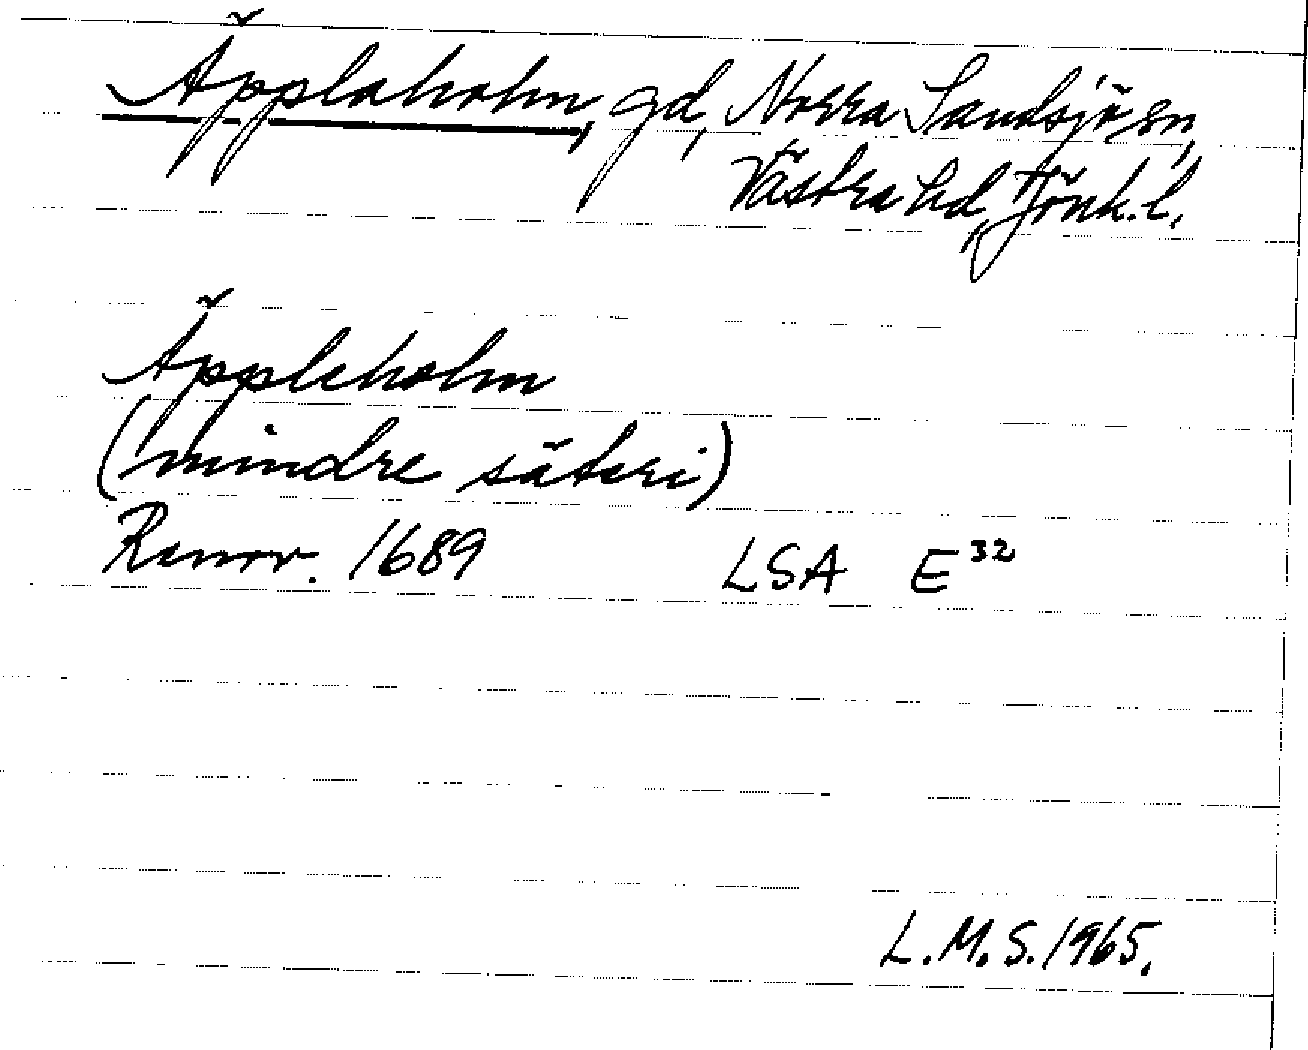 Äpplaholm, gd, Norra Sandsjö sn,
Västra hd, Jönk. l.
Äppleholm
(mindre säteri)
Renov. 1689 LSA E³²
L.M.S. 1965.